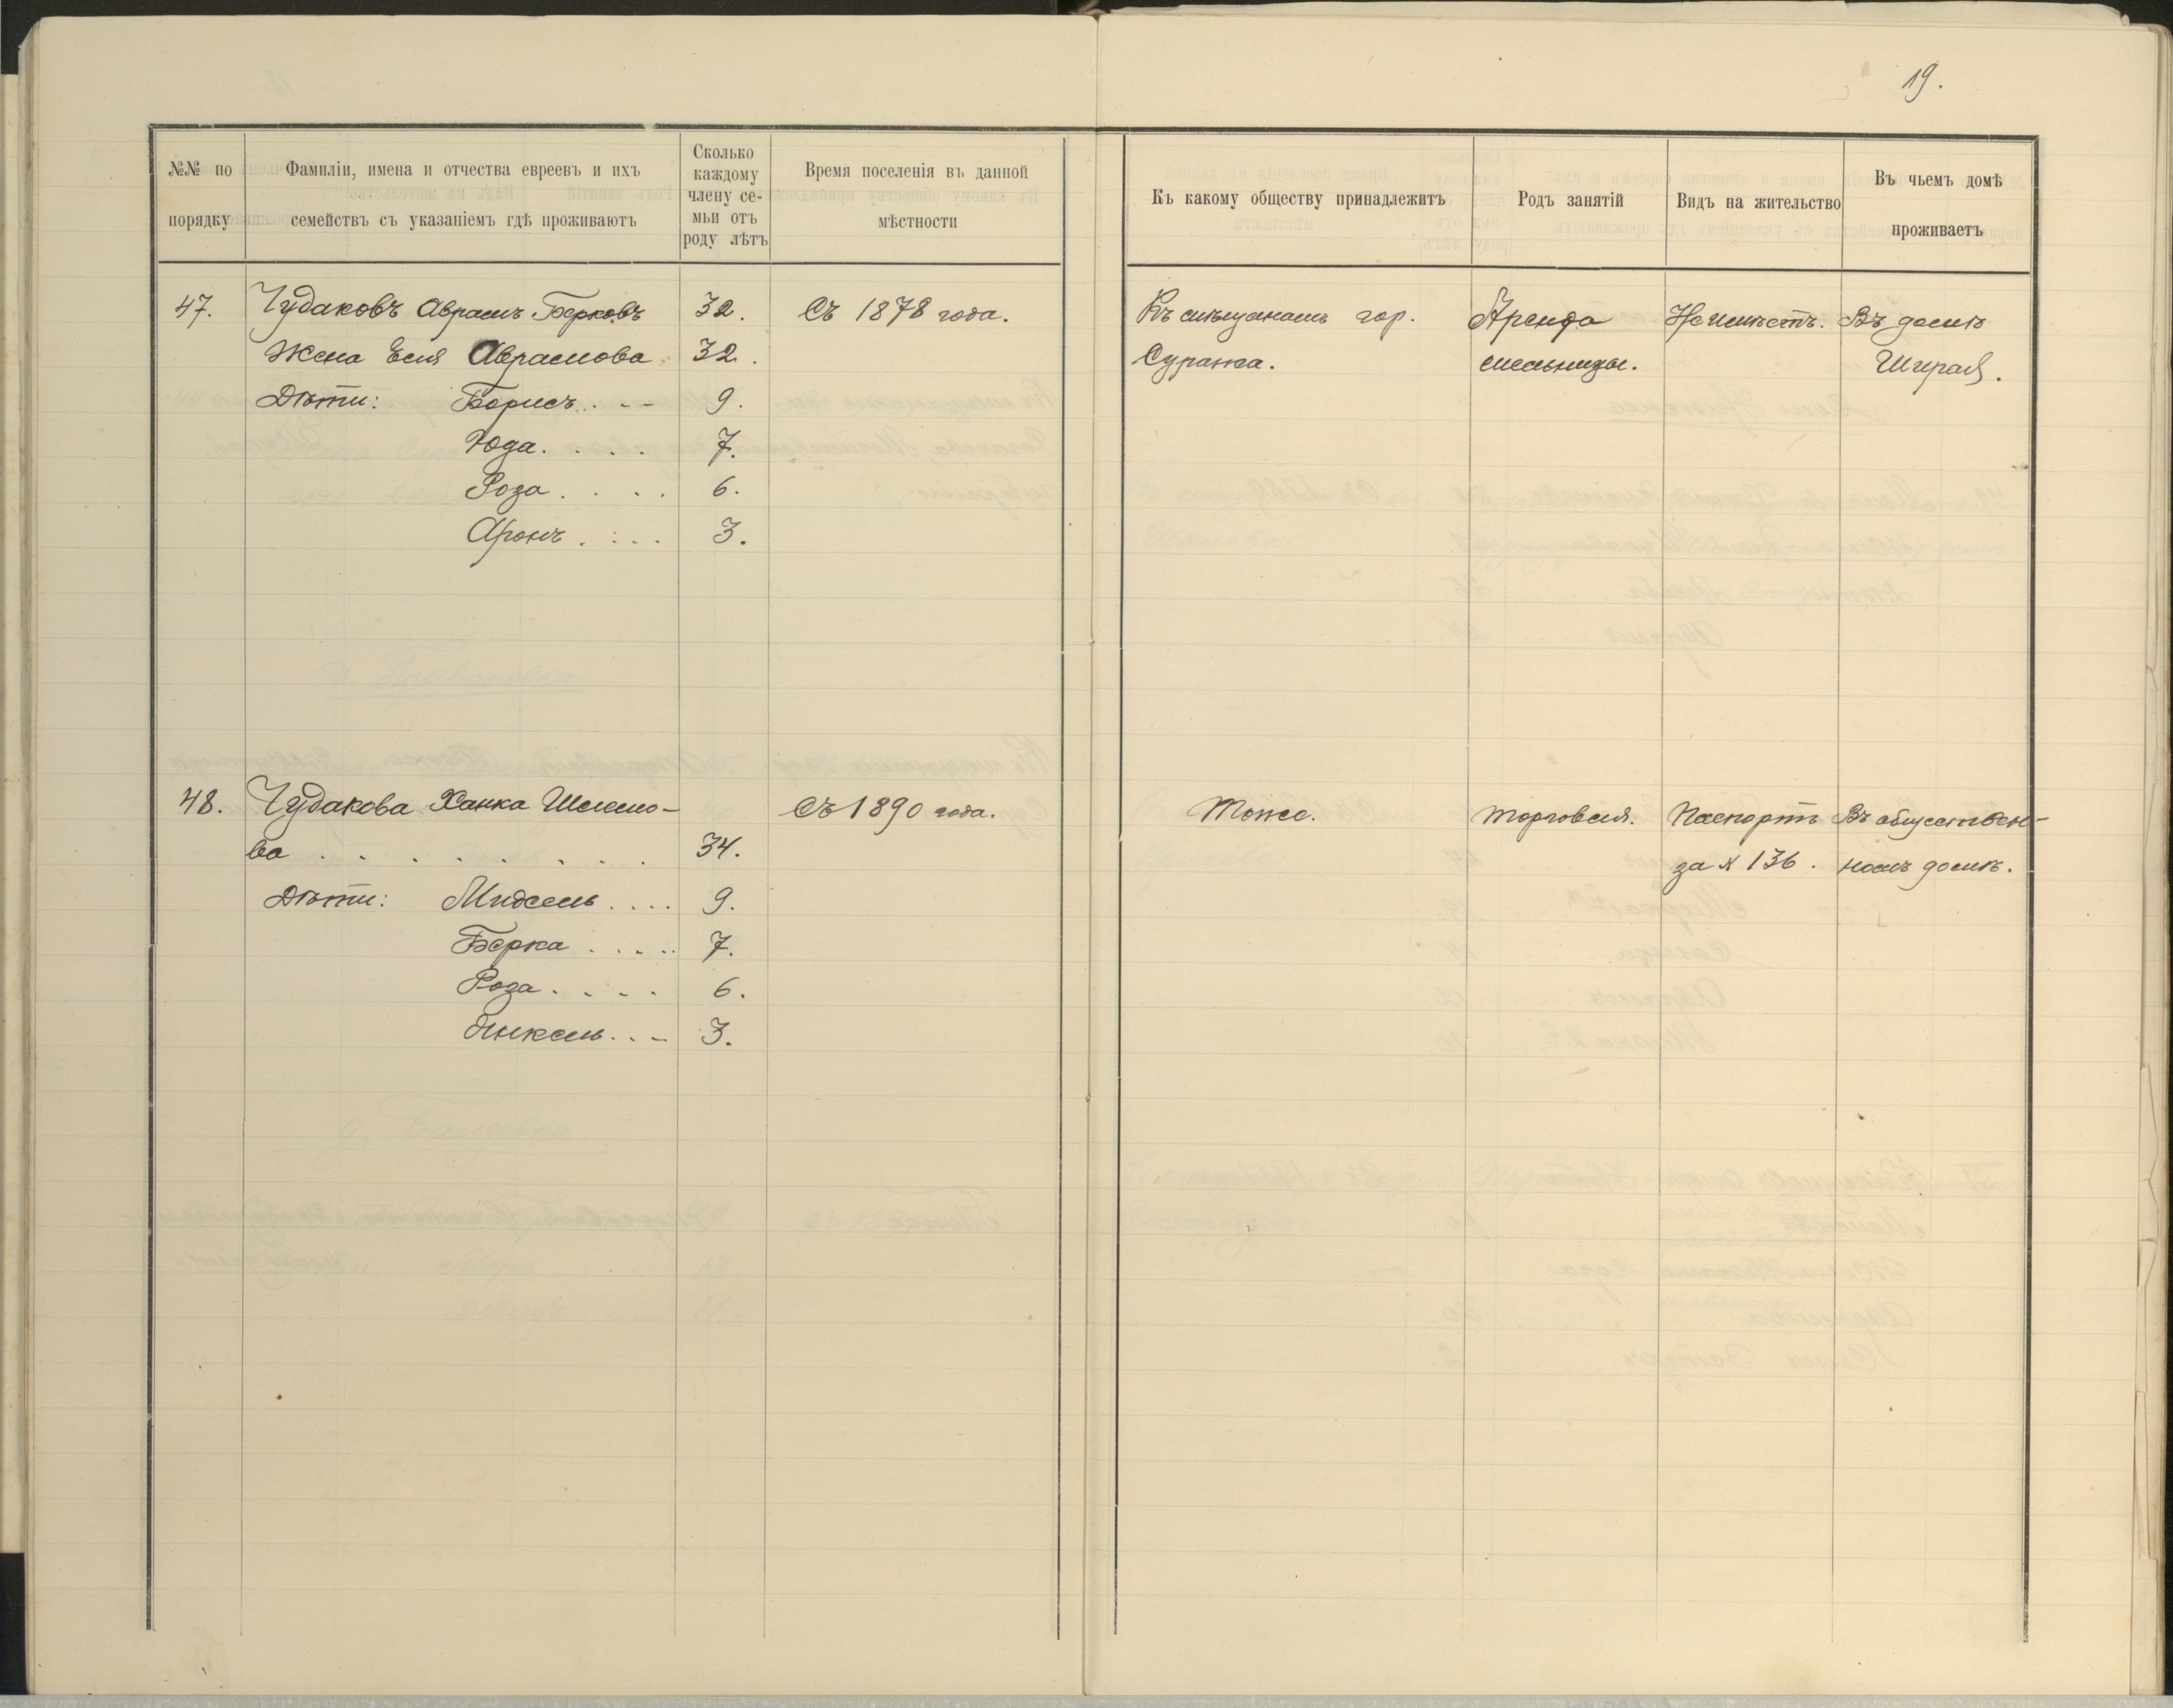 19.
№№ по порядку
Фамиліи, имена и отчества евреевъ и ихъ
семействъ съ указаніемъ гдѣ проживаютъ
Сколько
каждому
члену се-
мьи отъ
роду лѣтъ
Время поселенія въ данной
мѣстности
Къ какому обществу принадлежитъ
Родъ занятій
Видъ на жительство
Въ чьемъ домѣ
проживаетъ
47. Чудаковъ Аврамъ Берковъ 32. Съ 1878 года. Къ мѣщанамъ гор. Аренда Неимѣетъ. Въ домѣ
Жена Еля Аврамова 32. Суража. мельницы. Ширай.
Дѣти: Борисъ 9.
Юда. 7.
Роза 6.
Аронъ 3.
48. Чудакова Ханка Шлемо- Съ 1890 года. Тоже. Торговля. Паспортъ Въ обществен-
ва 34. за № 136. номъ домѣ.
Дѣти: Мидсель 9.
Берка 7.
Роза 6.
3.